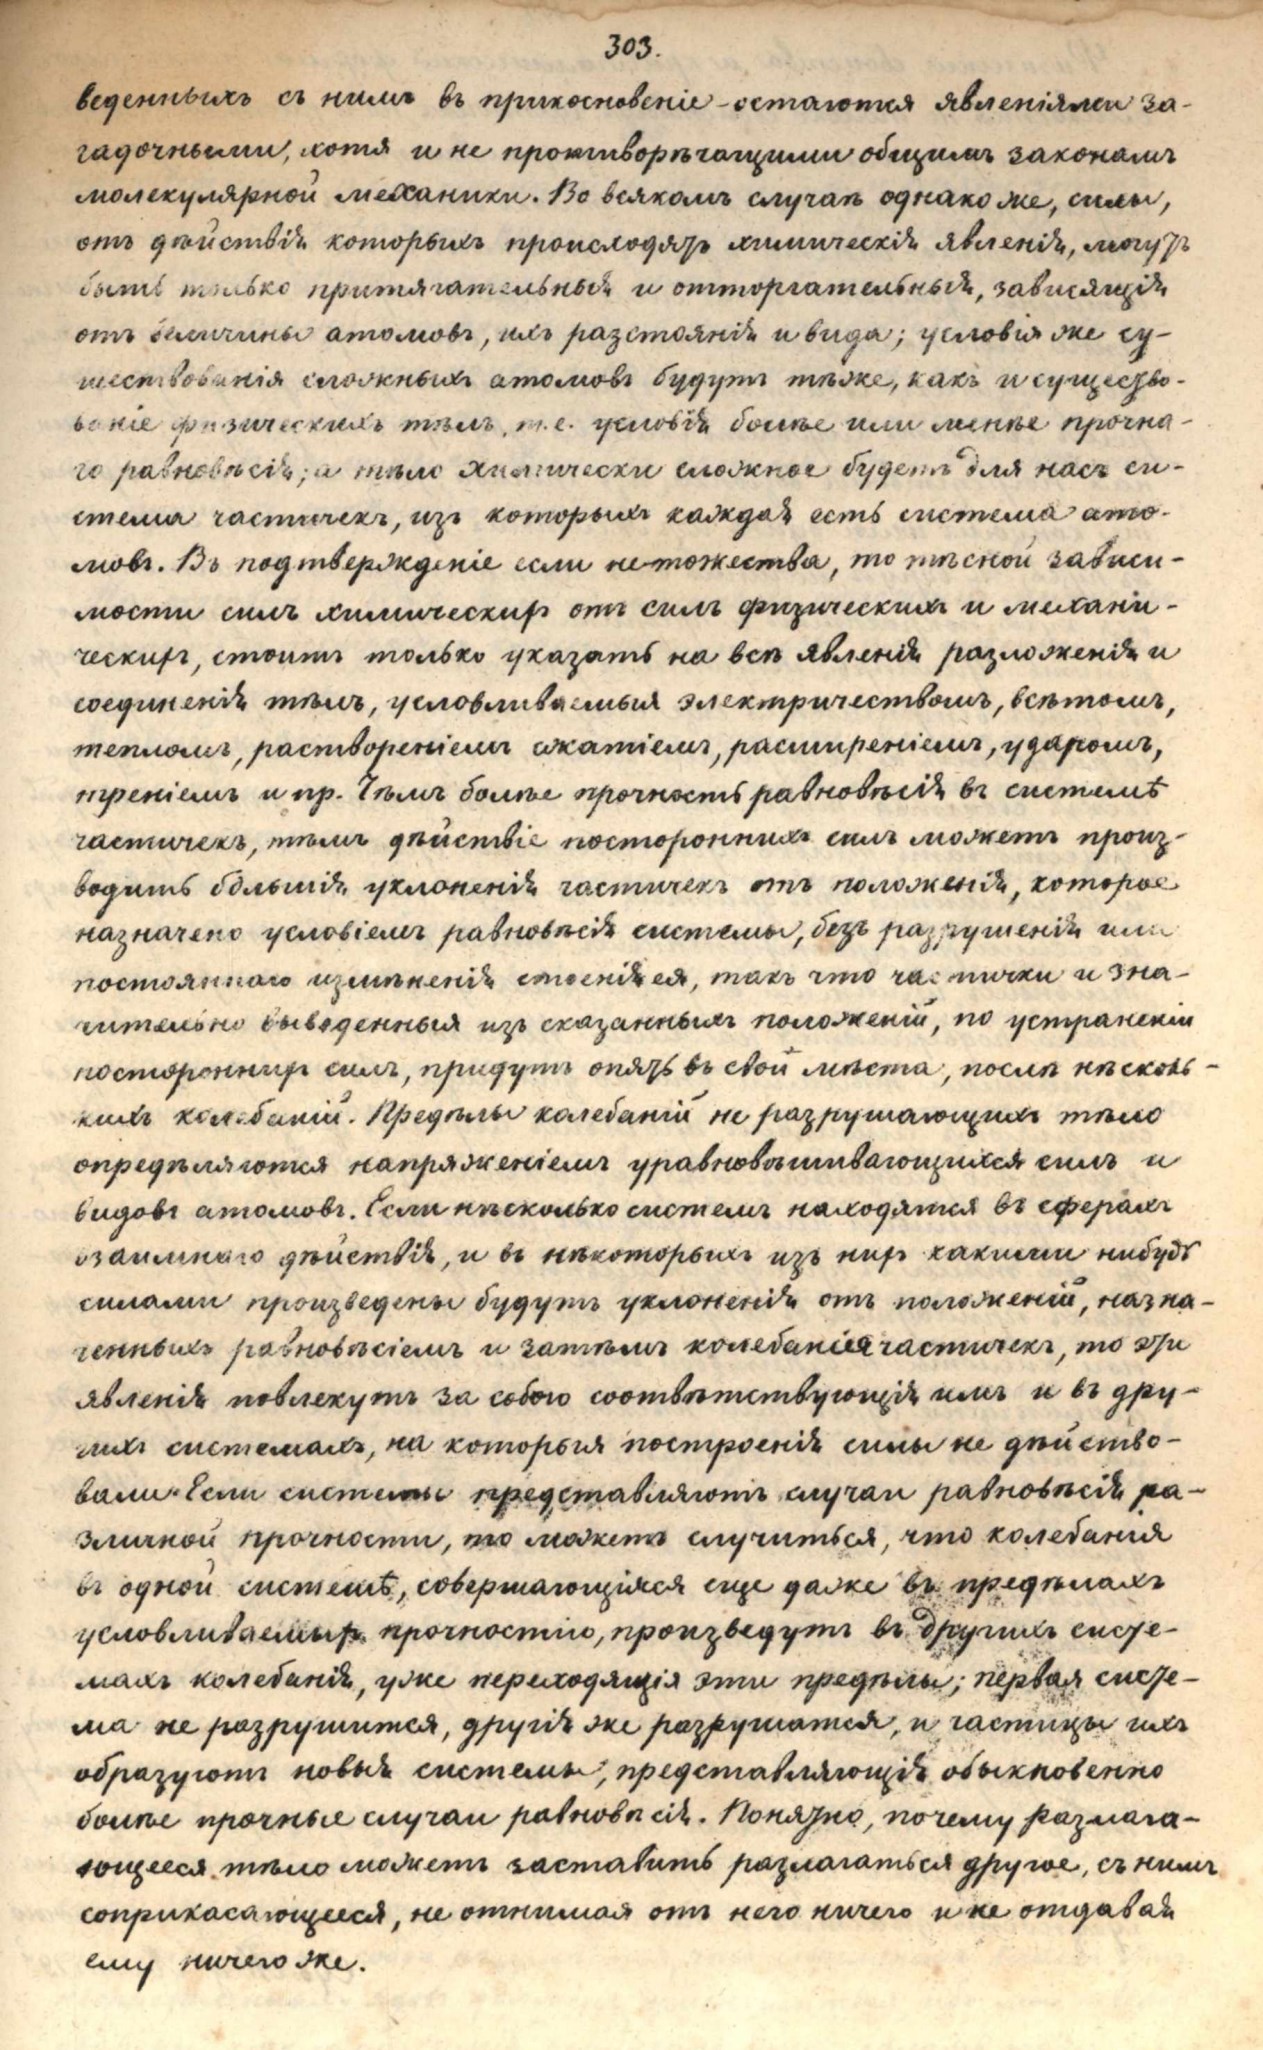 303.
веденныхъ съ нимъ въ прикосновеніе - остаются явленіями за-
гадочными, хотя и не противорѣчащими общимъ законамъ
молекулярной механики. Во всякомъ случаѣ однако же, силы,
отъ дѣйствія которыхъ происходятъ химическія явленія, могутъ
быть только притягательныя и отторгательныя, зависящія
отъ величины атомовъ, ихъ разстоянія и вида; условія же су-
ществованія сложныхъ атомовъ будутъ тѣже, какъ и существо-
ваніе физическихъ тѣлъ, т.е. условія болѣе или менѣе прочна-
го равновѣсія; а тѣло химически сложное будетъ для насъ си-
стема частичекъ, изъ которыхъ каждая есть система ато-
мовъ. Въ подтвержденіе если не тожества, то тѣсной зависи-
мости силъ химическихъ отъ силъ физическихъ и механи-
ческихъ, стоитъ только указать на всѣ явленія разложенія и
соединенія тѣлъ, условливаемыя электричествомъ, свѣтомъ,
тепломъ, раствореніемъ сжатіемъ, расширеніемъ, ударомъ,
треніемъ и пр. Чѣмъ болѣе прочность равновѣсія въ системѣ
частичекъ, тѣмъ дѣйствіе постороннихъ силъ можетъ произ-
водить бо́льшія уклоненія частичекъ отъ положенія, которое
назначено условіемъ равновѣсія системы, безъ разрушенія или
постояннаго измѣненія строенія ея, такъ что частички и зна-
чительно выведенныя изъ сказанныхъ положеній, по устраненіи
постороннихъ силъ, придутъ опять въ свои мѣста, послѣ нѣсколь-
кихъ колебаній. Предѣлы колебаній не разрушающихъ тѣло
опредѣляются напряженіемъ уравновѣшивающихся силъ и
видовъ атомовъ. Если нѣсколько системъ находятся въ сферахъ
взаимнаго дѣйствія, и въ нѣкоторыхъ изъ нихъ какими нибудь
силами произведены будутъ уклоненія отъ положеній, назна-
ченныхъ равновѣсіемъ и затѣмъ колебанія частичекъ, то эти
явленія повлекутъ за собою соотвѣтствующія имъ и въ дру-
гихъ системахъ, на которыя построенія силы не дѣйство-
вали. Если системы представляютъ случаи равновѣсія ра-
зличной прочности, то можетъ случиться, что колебанія
въ одной системѣ, совершающіяся еще даже въ предѣлахъ
условливаемыхъ прочностію, произведутъ въ другихъ систе-
махъ колебанія, уже переходящія эти предѣлы; первая систе-
ма не разрушится, другія же разрушатся, и частицы ихъ
образуютъ новыя системы, представляющія обыкновенно
болѣе прочные случаи равновѣсія. Понятно, почему разлага-
ющееся тѣло можетъ заставить разлагаться другое, съ нимъ
соприкасающееся, не отнимая отъ него ничего и не отдавая
ему ничего же.